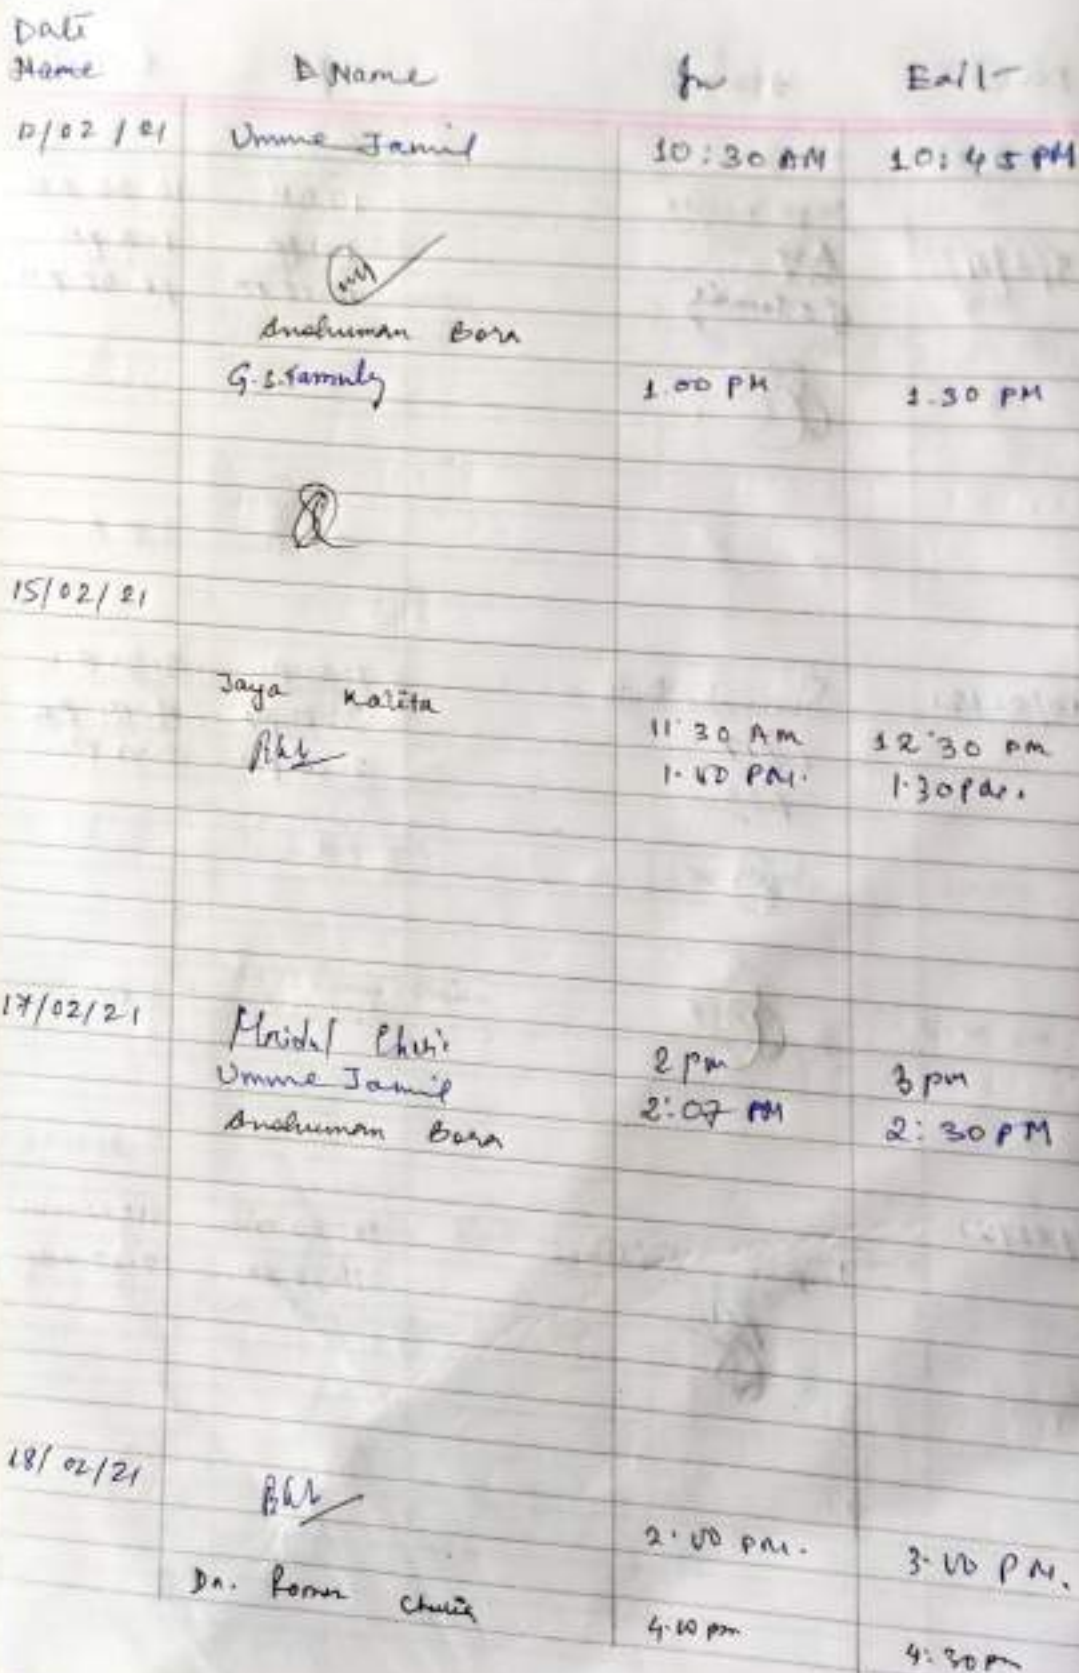 Date
Name Name In Exit
12/02/21 Umme Jamil 10:30 AM 10:45 PM
Anshuman Bora
G.S. Tamuly 1.00 PM 1.30 PM
15/02/21
Jaya Kalita 11.30 AM 12.30 PM
1.00 PM. 1.30 PM.
17/02/21 Mridul 2 pm 3 pm
Umme Jamil 2:07 PM 2:30 PM
Anshuman Bora
18/02/21 2.00 PM. 3.00 PM.
Dr. Chutia 4.00 pm 4:30 pm